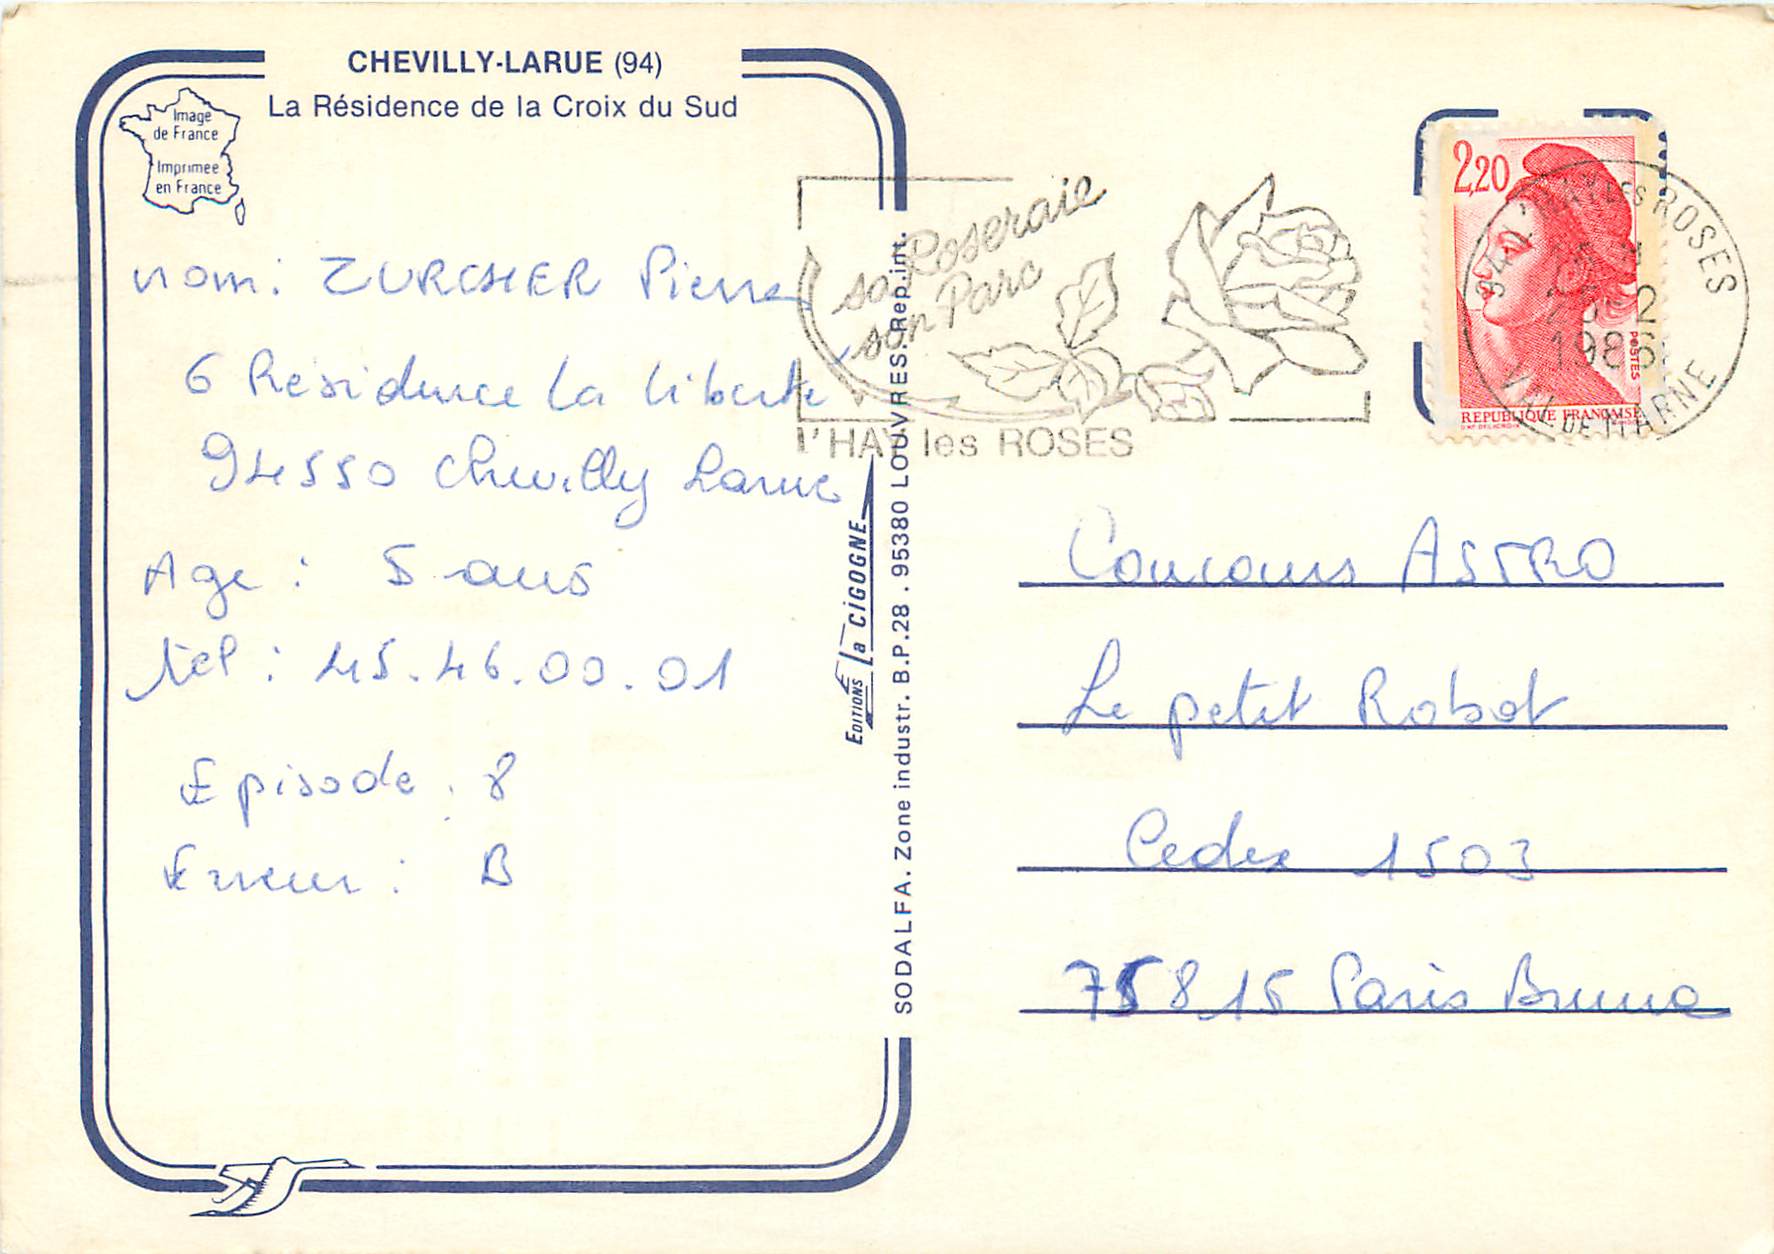 CHEVILLY-LARUE (94)
La Résidence de la Croix du Sud
Image
de France
Imprimée
en France
nom: ZURCHER Pierre
6 Résidence la liberté
94550 Chevilly Larue
Age : 5 ans
tel : 45.46.00.01
Episode : 8
Erreur : B
EDITIONS La CIGOGNE
SODALFA. Zone industr. B.P.28 . 95380 LOUVRES. Rep.int.
sa Roseraie
son Parc
l'HAY les ROSES
2,20
POSTES
REPUBLIQUE FRANÇAISE
94 L'HAY LES ROSES
25-2
1986
VAL DE MARNE
Concours ASTRO
Le petit Robot
Cedex 1503
75815 Paris Brune